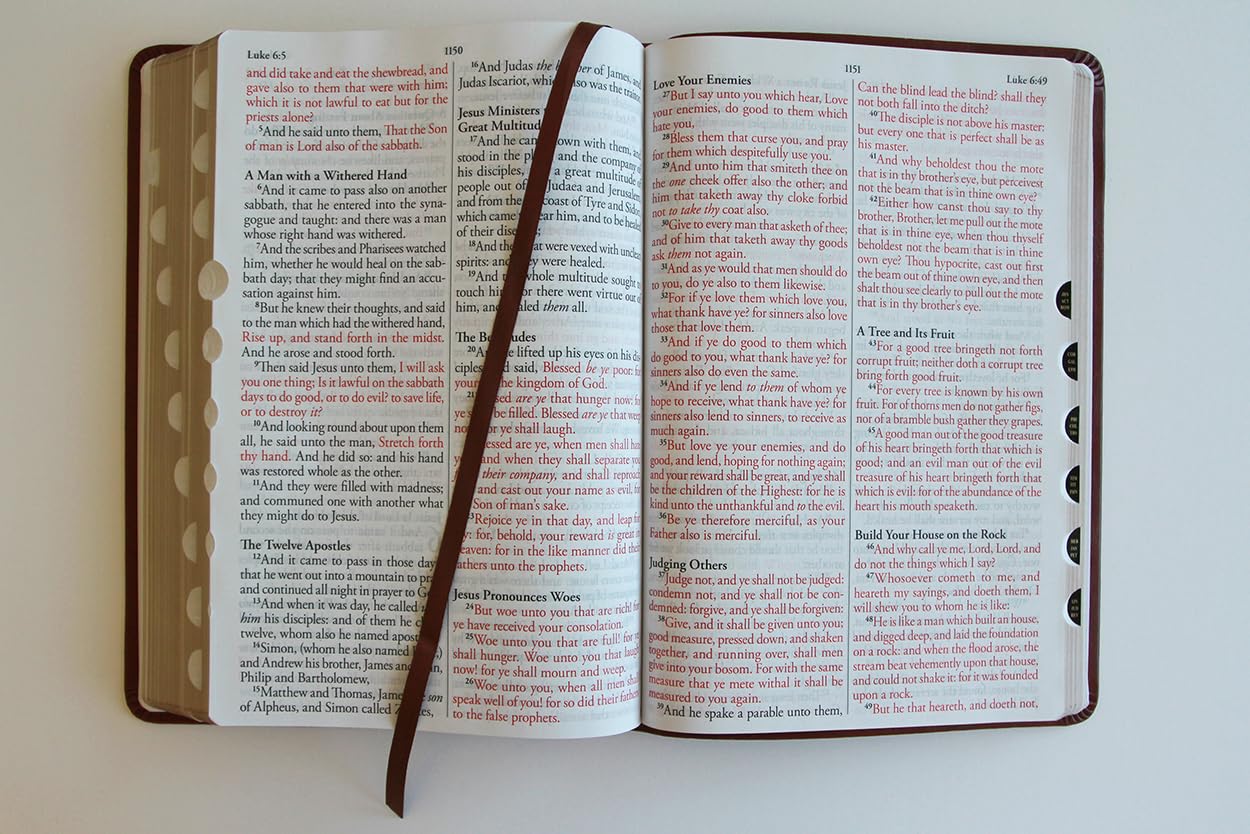 Luke 6:5
1150
and did take and eat the shewbread, and
gave also to them that were with him;
which it is not lawful to eat but for the
priests alone?
5And he said unto them, That the Son
of man is Lord also of the sabbath.
A Man with a Withered Hand
6And it came to pass also on another
sabbath, that he entered into the syna-
gogue and taught: and there was a man
whose right hand was withered.
7And the scribes and Pharisees watched
him, whether he would heal on the sab-
bath day; that they might find an accu-
sation against him.
8But he knew their thoughts, and said
to the man which had the withered hand,
Rise up, and stand forth in the midst.
And he arose and stood forth.
9Then said Jesus unto them, I will ask
you one thing; Is it lawful on the sabbath
days to do good, or to do evil? to save life,
or to destroy it?
10And looking round about upon them
all, he said unto the man, Stretch forth
thy hand. And he did so: and his hand
was restored whole as the other.
11And they were filled with madness;
and communed one with another what
they might do to Jesus.
The Twelve Apostles
12And it came to pass in those day
that he went out into a mountain to pr
and continued all night in prayer to G
13And when it was day, he called
him his disciples: and of them he c
twelve, whom also he named apost
14Simon, (whom he also named
and Andrew his brother, James and
Philip and Bartholomew,
15Matthew and Thomas, James son
of Alpheus, and Simon called
16And Judas the of James, and
Judas Iscariot, also was the traitor.
Jesus Ministers
Great Multitud
17And he down with them, and
stood in the and the company of
his disciples, a great multitude of
people out Judaea and Jerusalem,
and from the coast of Tyre and Sidon,
which came him, and to be healed
of their
18And the were vexed with unclean
spirits: they were healed.
19And whole multitude sought to
touch him there went virtue out of
him, and them all.
The
20And he lifted up his eyes on his dis-
ciples said, Blessed be ye poor: for
the kingdom of God.
21 are ye that hunger now: for
ye be filled. Blessed are ye that weep
for ye shall laugh.
are ye, when men shall hate
and when they shall separate you
their company, and shall reproach
and cast out your name as evil, for
Son of man's sake.
Rejoice ye in that day, and leap for
for, behold, your reward is great in
heaven: for in the like manner did their
fathers unto the prophets.
Jesus Pronounces Woes
24But woe unto you that are rich! for
ye have received your consolation.
25Woe unto you that are full! for ye
shall hunger. Woe unto you that laugh
now! for ye shall mourn and weep.
26Woe unto you, when all men shall
speak well of you! for so did their fathers
to the false prophets.
1151
Luke 6:49
Love Your Enemies
27But I say unto you which hear, Love
your enemies, do good to them which
hate you,
28Bless them that curse you, and pray
for them which despitefully use you.
29And unto him that smiteth thee on
the one cheek offer also the other; and
him that taketh away thy cloke forbid
not to take thy coat also.
30Give to every man that asketh of thee;
and of him that taketh away thy goods
ask them not again.
31And as ye would that men should do
to you, do ye also to them likewise.
32For if ye love them which love you,
what thank have ye? for sinners also love
those that love them.
33And if ye do good to them which
do good to you, what thank have ye? for
sinners also do even the same.
34And if ye lend to them of whom ye
hope to receive, what thank have ye? for
sinners also lend to sinners, to receive as
much again.
35But love ye your enemies, and do
good, and lend, hoping for nothing again;
and your reward shall be great, and ye shall
be the children of the Highest: for he is
kind unto the unthankful and to the evil.
36Be ye therefore merciful, as your
Father also is merciful.
Judging Others
37Judge not, and ye shall not be judged:
condemn not, and ye shall not be con-
demned: forgive, and ye shall be forgiven:
38Give, and it shall be given unto you;
good measure, pressed down, and shaken
together, and running over, shall men
give into your bosom. For with the same
measure that ye mete withal it shall be
measured to you again.
39And he spake a parable unto them,
Can the blind lead the blind? shall they
not both fall into the ditch?
40The disciple is not above his master:
but every one that is perfect shall be as
his master.
41And why beholdest thou the mote
that is in thy brother's eye, but perceivest
not the beam that is in thine own eye?
42Either how canst thou say to thy
brother, Brother, let me pull out the mote
that is in thine eye, when thou thyself
beholdest not the beam that is in thine
own eye? Thou hypocrite, cast out first
the beam out of thine own eye, and then
shalt thou see clearly to pull out the mote
that is in thy brother's eye.
A Tree and Its Fruit
43For a good tree bringeth not forth
corrupt fruit; neither doth a corrupt tree
bring forth good fruit.
44For every tree is known by his own
fruit. For of thorns men do not gather figs,
nor of a bramble bush gather they grapes.
45A good man out of the good treasure
of his heart bringeth forth that which is
good; and an evil man out of the evil
treasure of his heart bringeth forth that
which is evil: for of the abundance of the
heart his mouth speaketh.
Build Your House on the Rock
46And why call ye me, Lord, Lord, and
do not the things which I say?
47Whosoever cometh to me, and
heareth my sayings, and doeth them, I
will shew you to whom he is like:
48He is like a man which built an house,
and digged deep, and laid the foundation
on a rock: and when the flood arose, the
stream beat vehemently upon that house,
and could not shake it: for it was founded
upon a rock.
49But he that heareth, and doeth not,